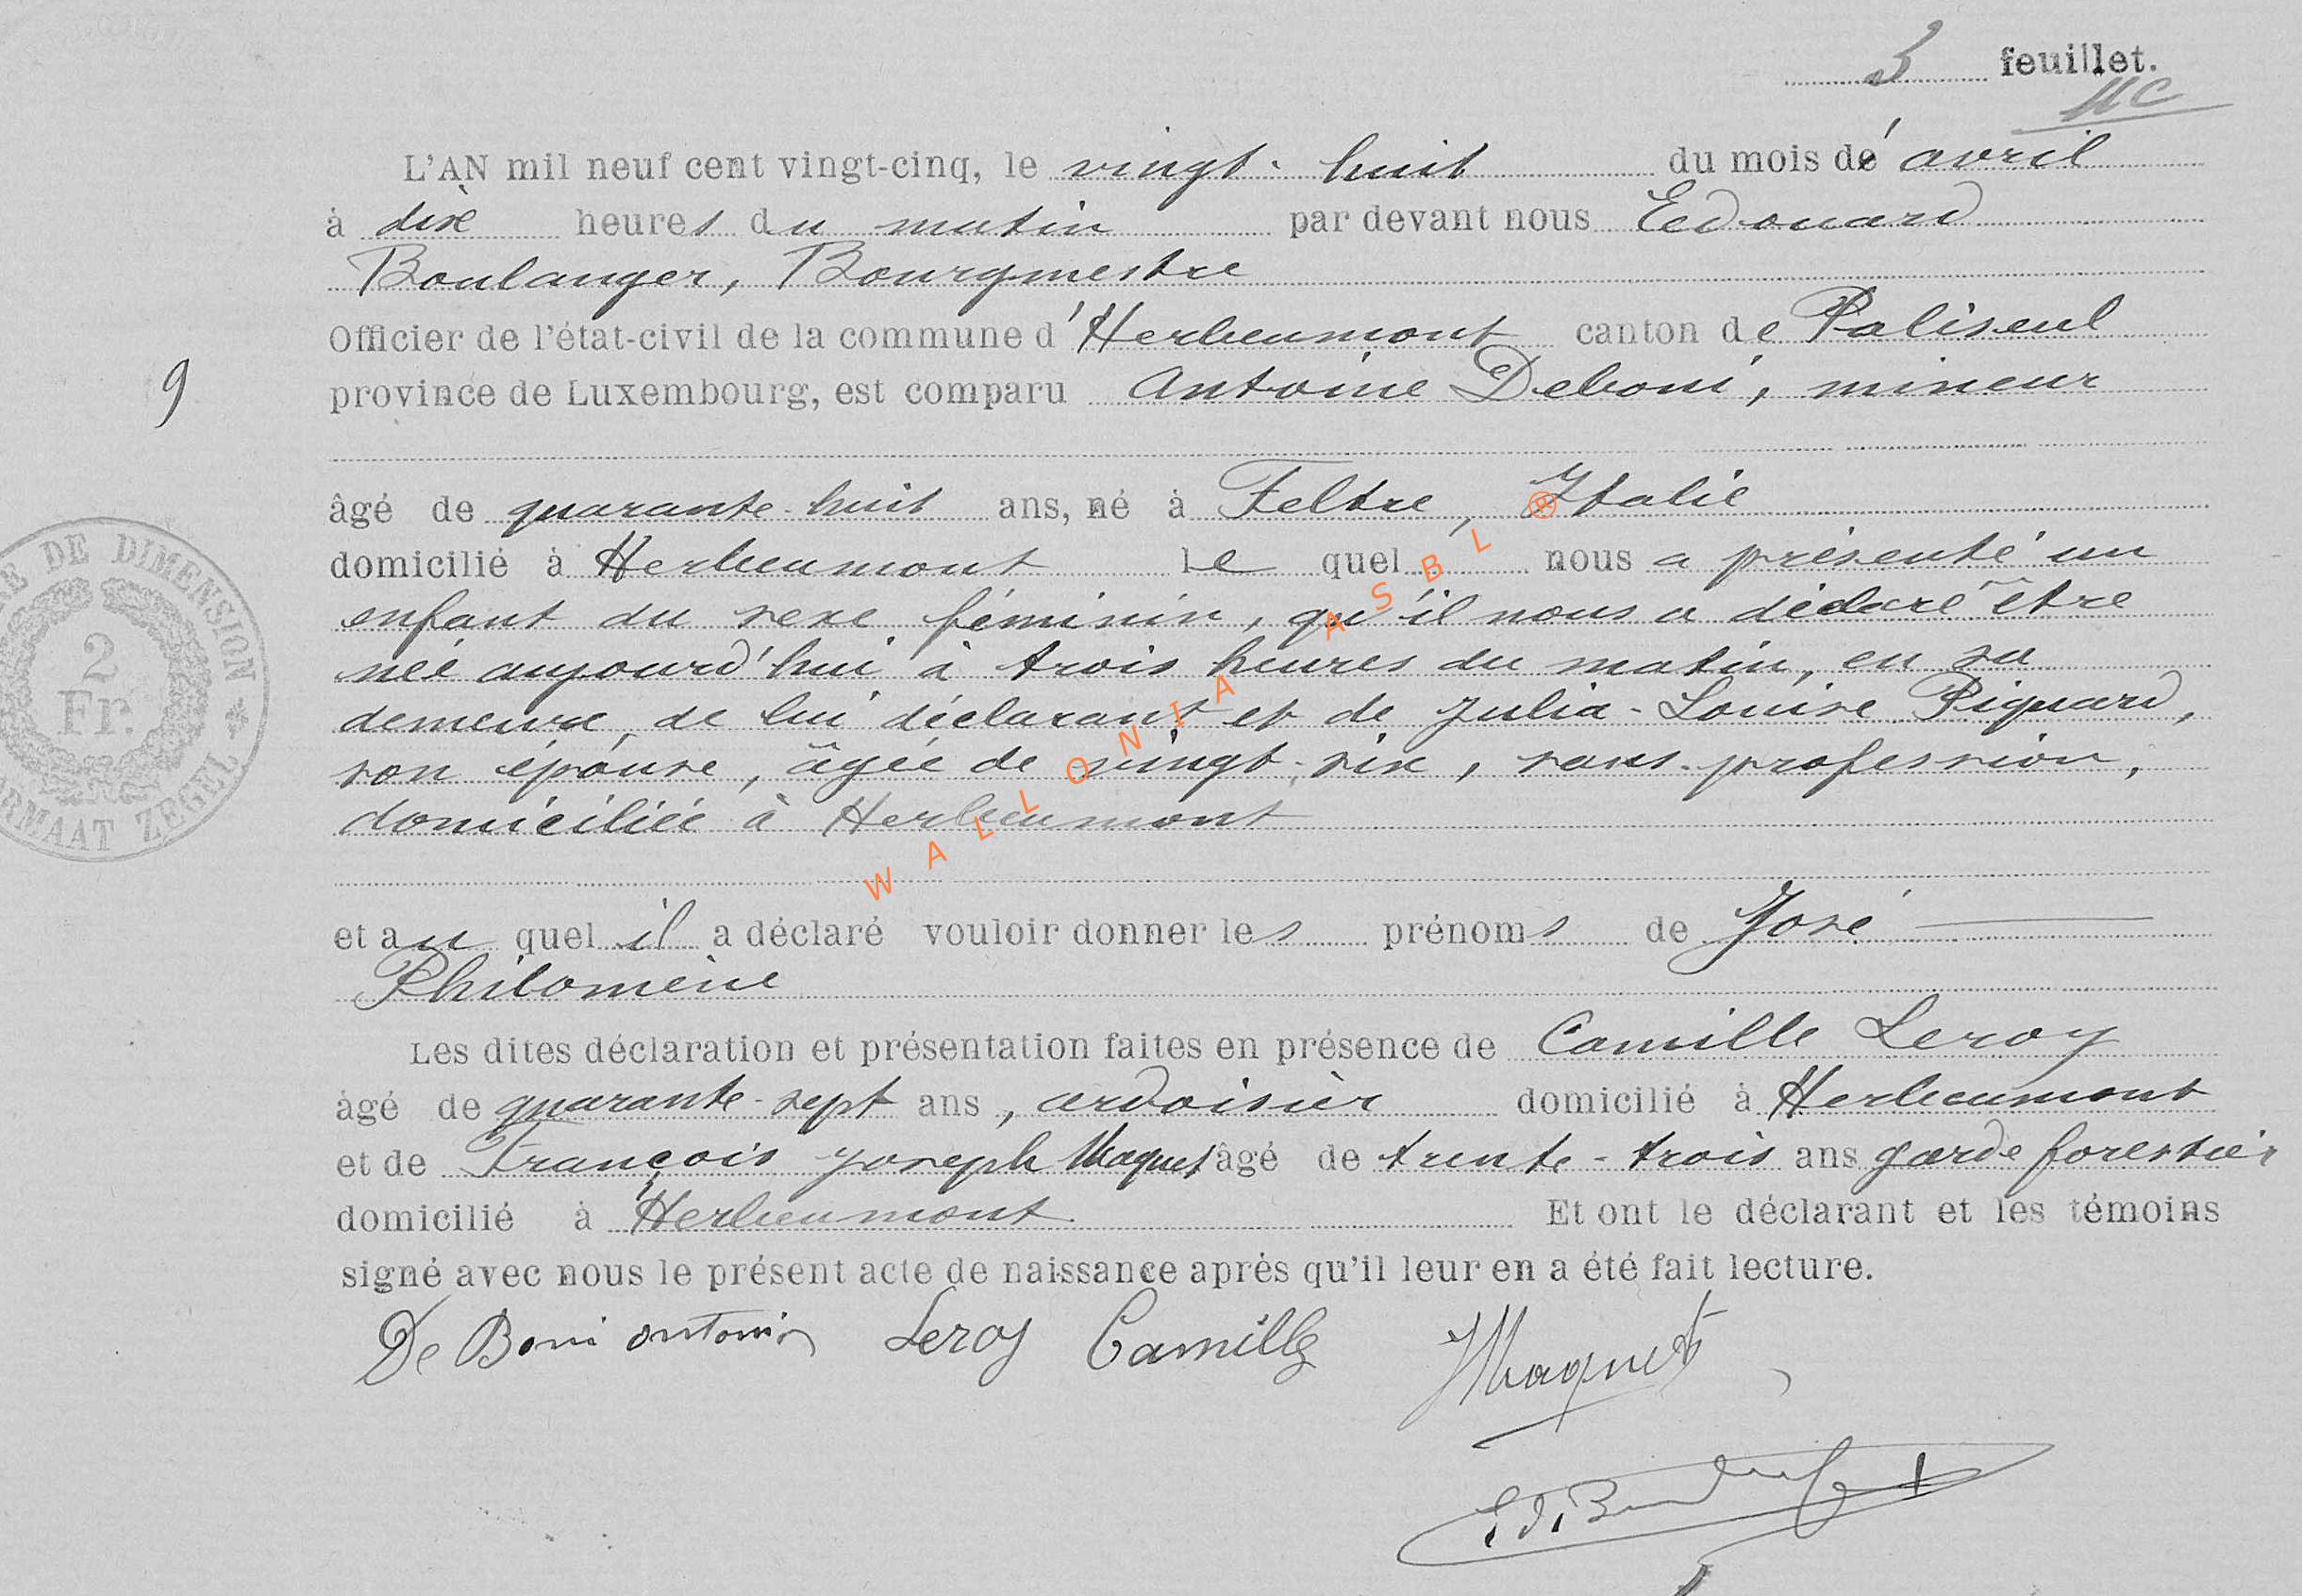 3 feuillet.
L'AN mil neuf cent vingt-cinq, le vingt-huit du mois dé avril
à dix heures du matin par devant nous Edouard
Boulanger, Bourgmestre
Officier de l'état-civil de la commune d'Herbeumont canton de Paliseul
9
province de Luxembourg, est comparu Antoine Deboni, mineur
âgé de quarante-huit ans, né à Feltre, Italie
domicilié à Herbeumont lequel nous a présenté un
enfant du sexe féminin, qu'il nous a déclaré être
née aujourd'hui à trois heures du matin, en sa
demeure, de lui déclarant et de Julia-Louise Piquard,
son épouse, âgée de vingt-six, sans profession,
domiciliée à Herbeumont
et au quel il a déclaré vouloir donner les prénoms de José
Philomène
Les dites déclaration et présentation faites en présence de Camille Leroy
âgé de quarante-sept ans, ardoisier domicilié à Herbeumont
et de François Joseph Maquet âgé de trente-trois ans garde forestier
domicilié à Herbeumont Et ont le déclarant et les témoins
signé avec nous le présent acte de naissance après qu'il leur en a été fait lecture.
De Boni Antonio Leroy Camille JMaquet
DE DIMENSION
2
Fr.
FORMAAT ZEGEL
WALLONIA ASBL ®